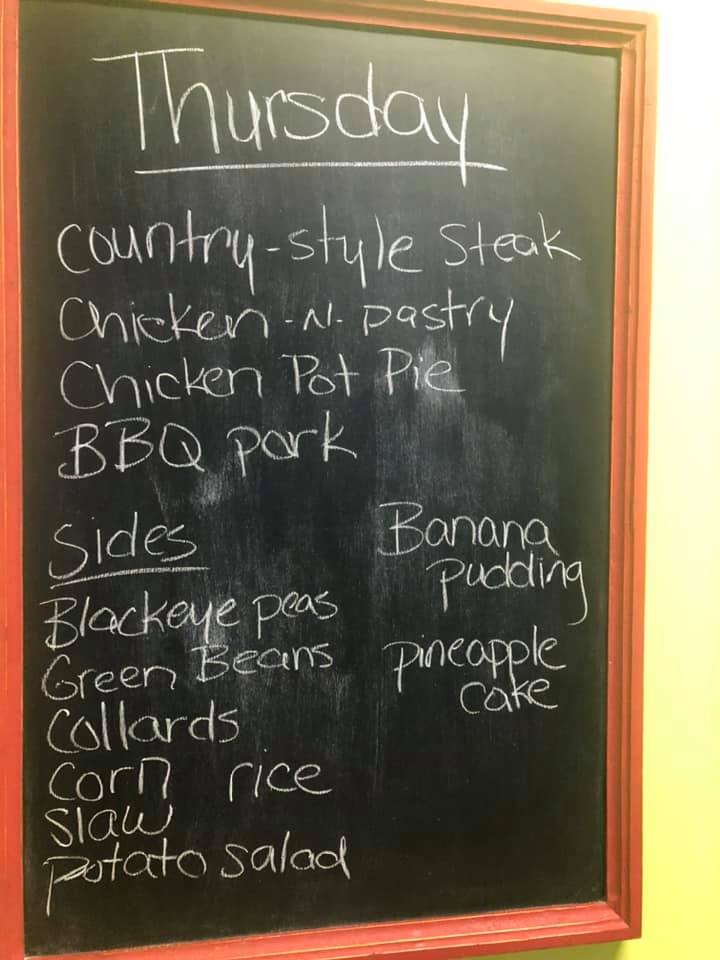 Thursday
Country-style Steak
Chicken -N- pastry
Chicken Pot Pie
BBQ pork
Sides
Blackeye peas
Green Beans
Collards
corn rice
slaw
potato salad
Banana
pudding
pineapple
cake